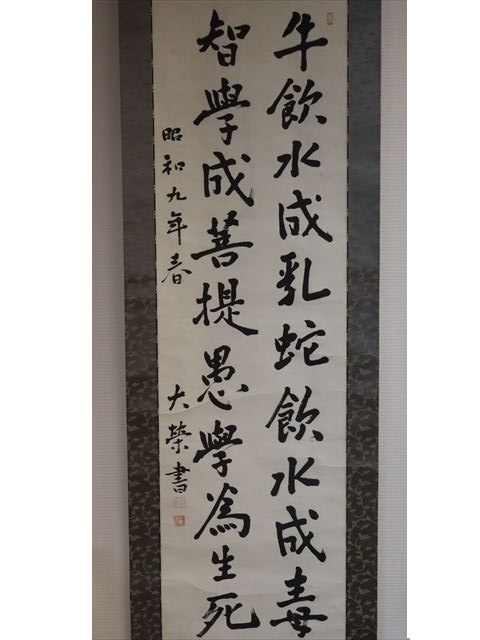 牛飲水成乳蛇飲水成毒
智學成菩提愚學為生死
昭和九年春
大榮書